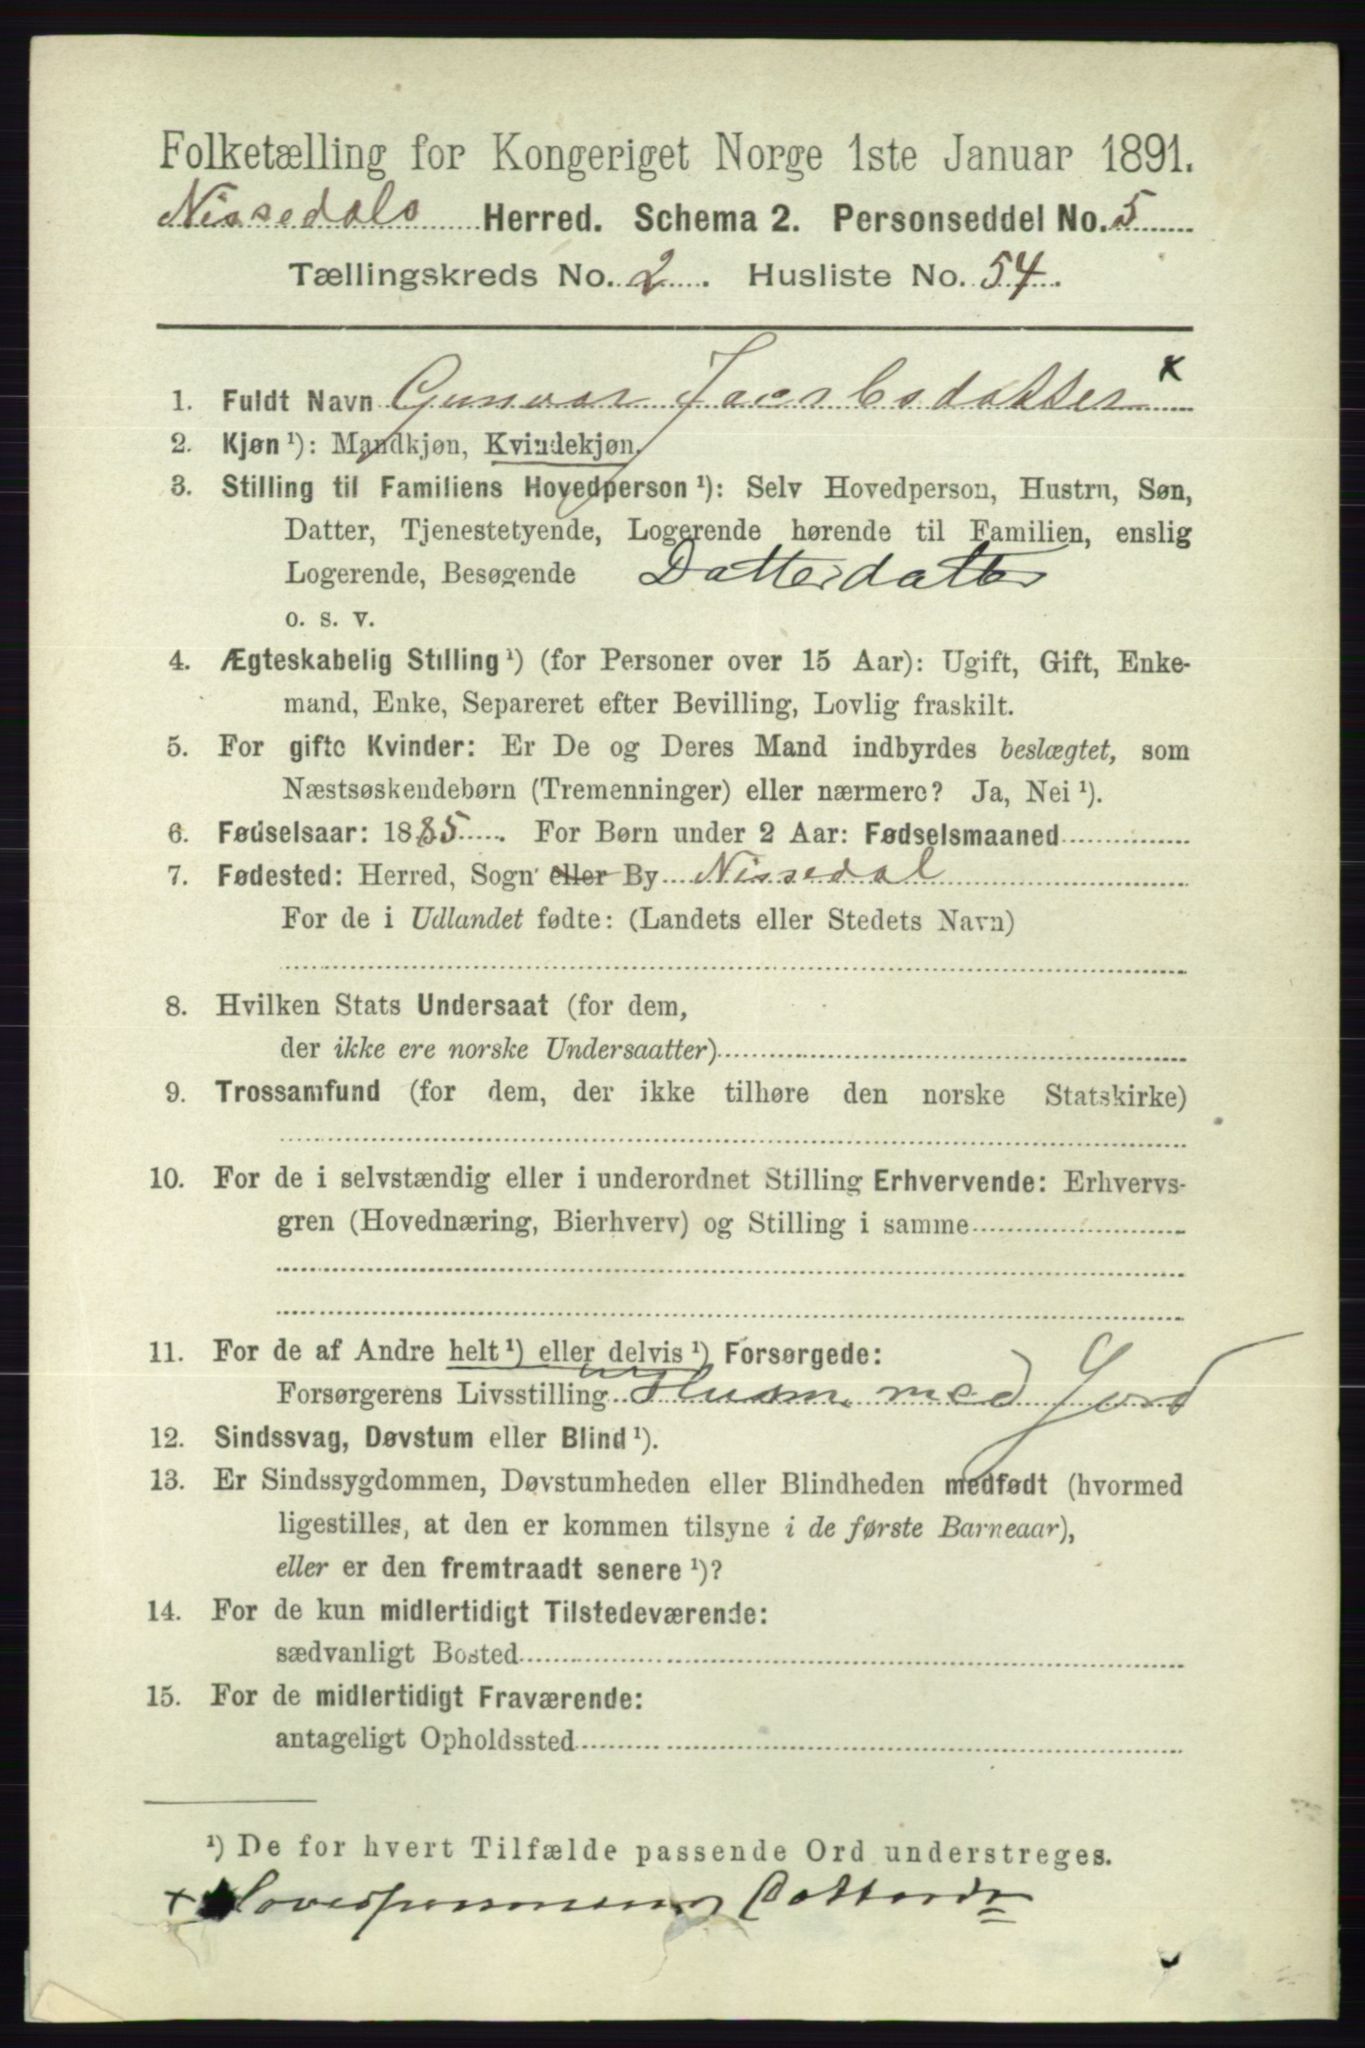 Folketælling for Kongeriget Norge 1ste Januar 1891.
Nissedals Herred. Schema 2. Personseddel No. 5
Tællingskreds No. 2. Husliste No. 54.
1. Fuldt Navn Gunvor Jacobsdatter x
2. Kjøn ¹): Mandkjøn, Kvindekjøn.
3. Stilling til Familiens Hovedperson ¹): Selv Hovedperson, Hustru, Søn,
Datter, Tjenestetyende, Logerende hørende til Familien, enslig
Logerende, Besøgende Datterdatter
o. s. v.
4. Ægteskabelig Stilling ¹) (for Personer over 15 Aar): Ugift, Gift, Enke-
mand, Enke, Separeret efter Bevilling, Lovlig fraskilt.
5. For gifte Kvinder: Er De og Deres Mand indbyrdes beslægtet, som
Næstsøskendebørn (Tremenninger) eller nærmere? Ja, Nei ¹).
6. Fødselsaar: 1885. For Børn under 2 Aar: Fødselsmaaned
7. Fødested: Herred, Sogn eller By Nissedal
For de i Udlandet fødte: (Landets eller Stedets Navn)
8. Hvilken Stats Undersaat (for dem,
der ikke ere norske Undersaatter)
9. Trossamfund (for dem, der ikke tilhøre den norske Statskirke)
10. For de i selvstændig eller i underordnet Stilling Erhvervende: Erhvervs-
gren (Hovednæring, Bierhverv) og Stilling i samme
11. For de af Andre helt ¹) eller delvis ¹) Forsørgede:
Forsørgerens Livsstilling Husm. med Jord
12. Sindssvag, Døvstum eller Blind ¹).
13. Er Sindssygdommen, Døvstumheden eller Blindheden medfødt (hvormed
ligestilles, at den er kommen tilsyne i de første Barneaar),
eller er den fremtraadt senere ¹)?
14. For de kun midlertidigt Tilstedeværende:
sædvanligt Bosted
15. For de midlertidigt Fraværende:
antageligt Opholdssted
¹) De for hvert Tilfælde passende Ord understreges.
x Hovedpersonens